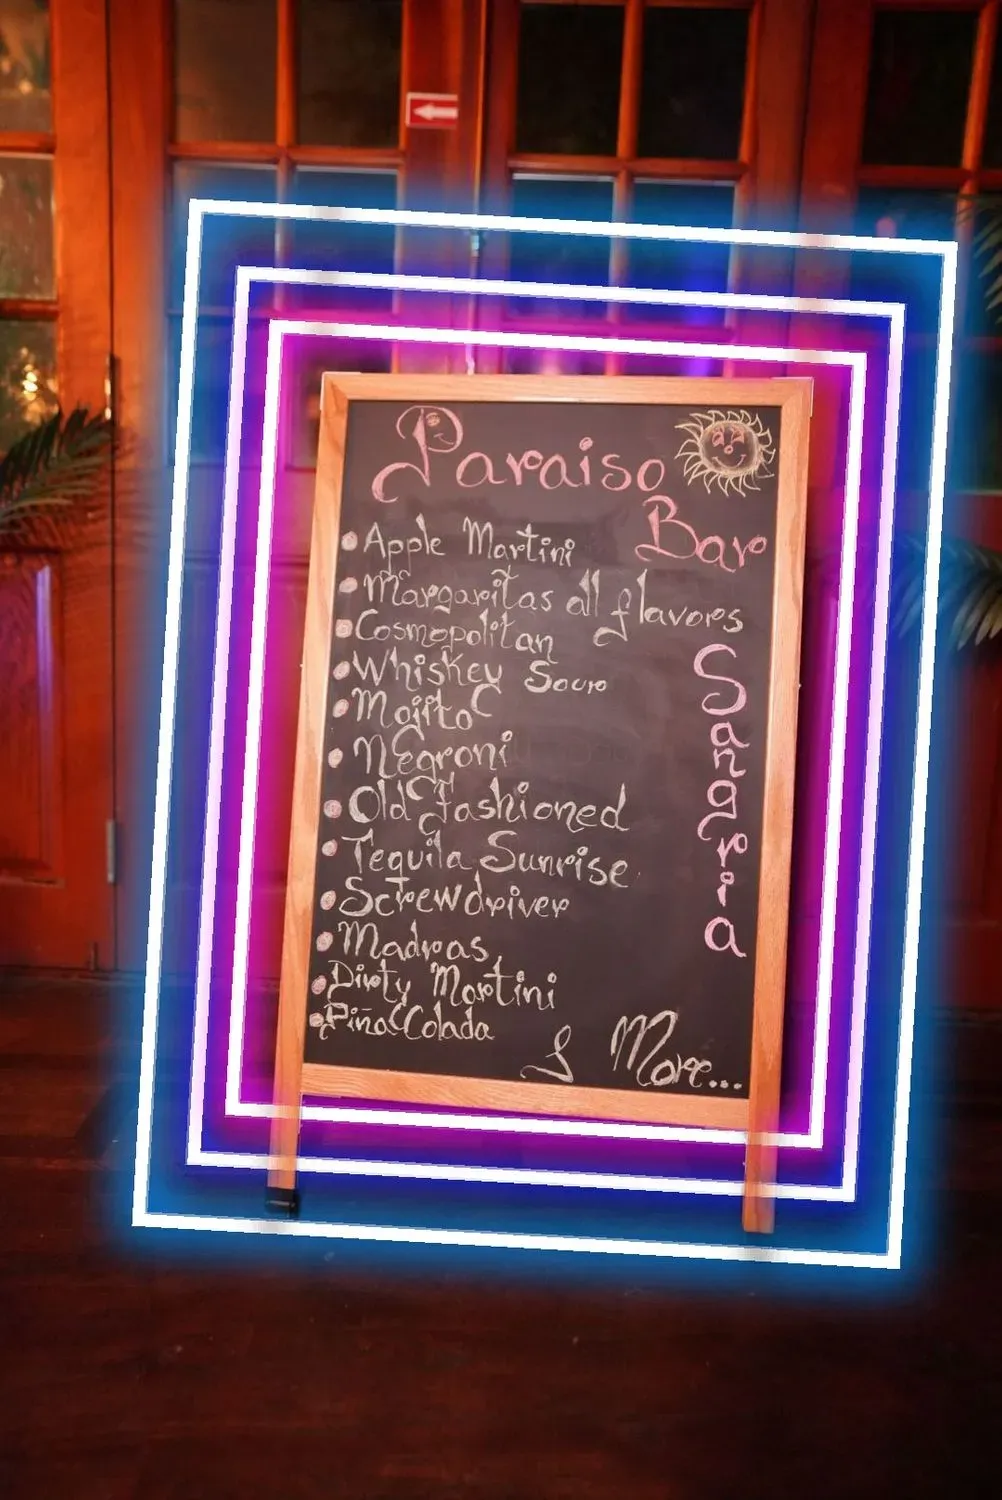 Paraiso
Bar
Apple Martini
Margaritas all flavors
Cosmopolitan
Whiskey Sour
Mojito
Negroni
Old Fashioned
Tequila Sunrise
Screwdriver
Madras
Dirty Martini
Piña Colada
Sangria
& More...